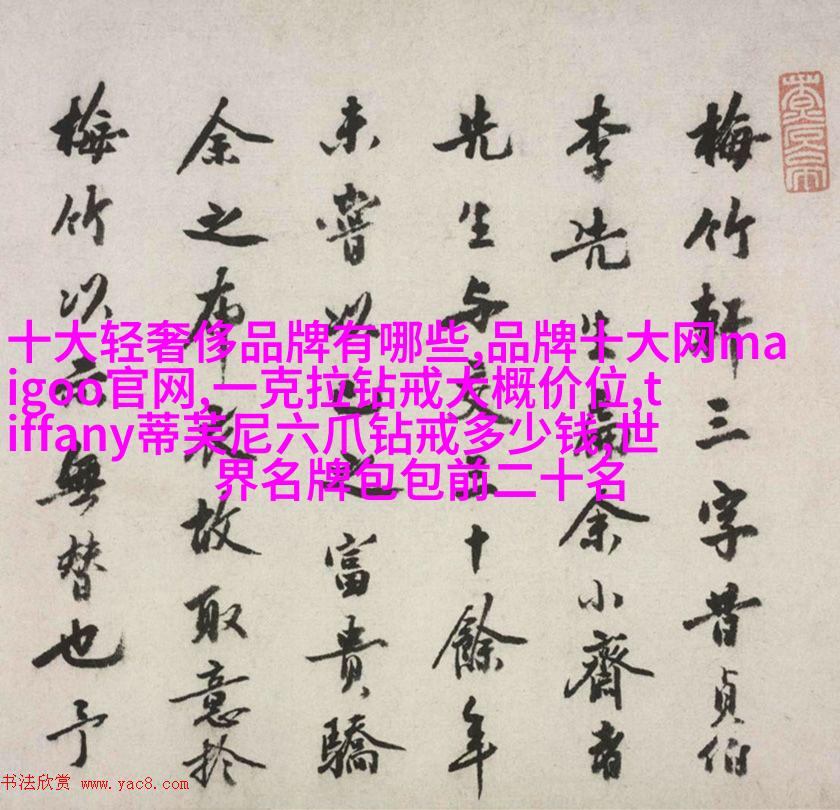 梅竹軒三字昔貞伯
李先生扁余小齋者
先生与交五十餘年
未嘗以富貴驕
余之布衣故取意於
梅竹以示無替也予
十大轻奢侈品牌有哪些,品牌十大网ma
igoo官网,一克拉钻戒大概价位,t
iffany蒂芙尼六爪钻戒多少钱,世
界名牌包包前二十名
书法欣赏 www.yac8.com